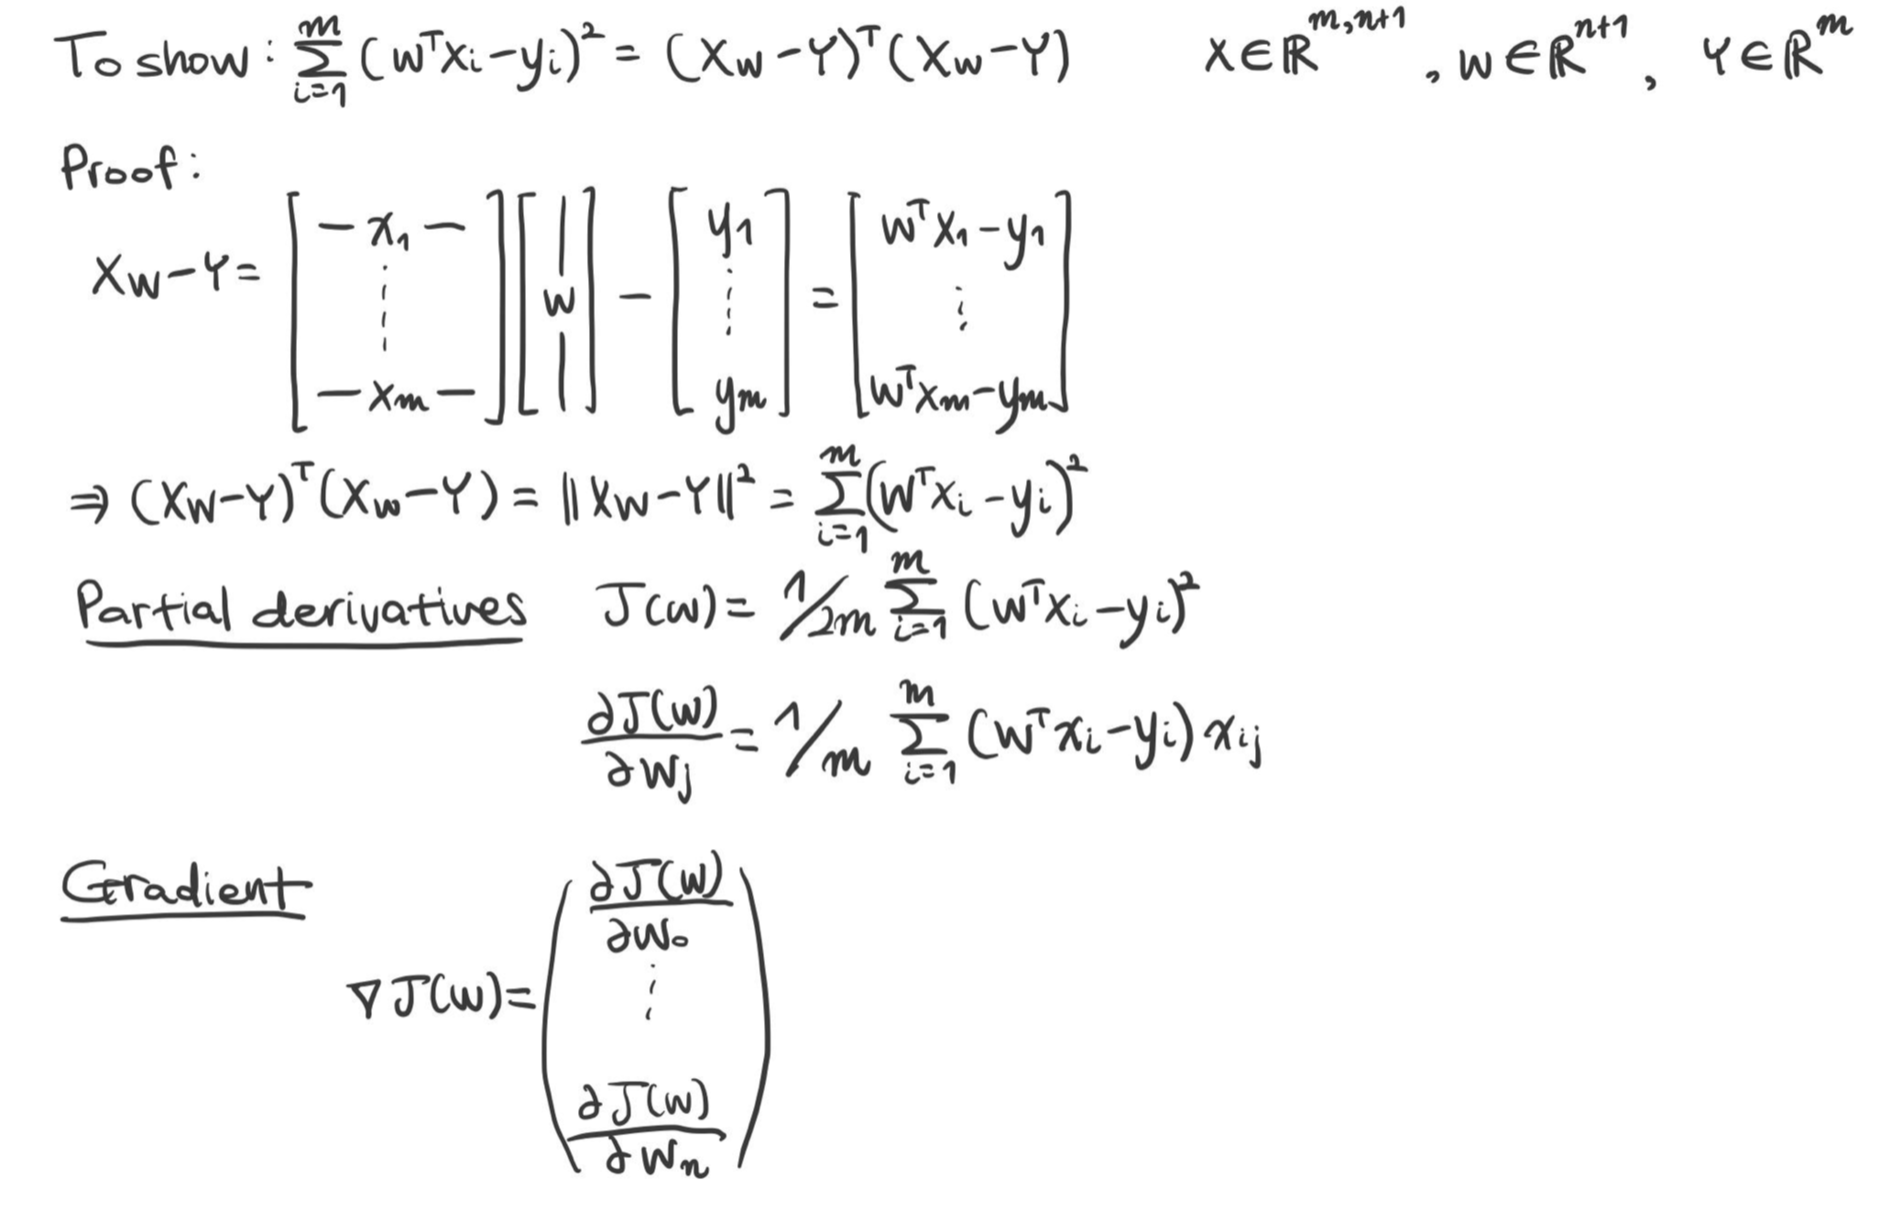 To show: $\sum_{i=1}^{m} (w^T x_i - y_i)^2 = (Xw - Y)^T (Xw - Y)$ $X \in \mathbb{R}^{m,n+1}, w \in \mathbb{R}^{n+1}, Y \in \mathbb{R}^m$
Proof:
$Xw - Y = \begin{bmatrix} - x_1 - \\ \vdots \\ - x_m - \end{bmatrix} \begin{bmatrix} | \\ w \\ | \end{bmatrix} - \begin{bmatrix} y_1 \\ \vdots \\ y_m \end{bmatrix} = \begin{bmatrix} w^T x_1 - y_1 \\ \vdots \\ w^T x_m - y_m \end{bmatrix}$
$\Rightarrow (Xw - Y)^T (Xw - Y) = \|Xw - Y\|^2 = \sum_{i=1}^{m} (w^T x_i - y_i)^2$
Partial derivatives $J(w) = 1/2m \sum_{i=1}^{m} (w^T x_i - y_i)^2$
$\frac{\partial J(w)}{\partial w_j} = 1/m \sum_{i=1}^{m} (w^T x_i - y_i) x_{ij}$
Gradient
$\nabla J(w) = \begin{pmatrix} \frac{\partial J(w)}{\partial w_0} \\ \vdots \\ \frac{\partial J(w)}{\partial w_n} \end{pmatrix}$